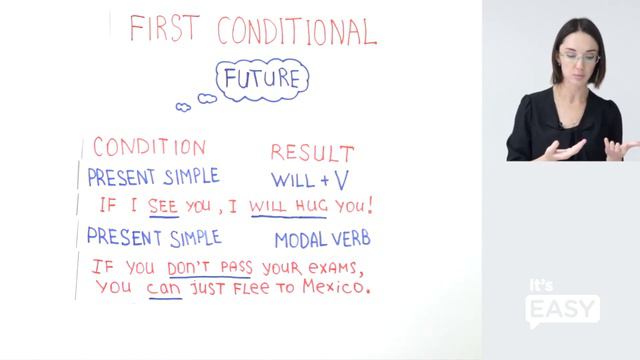 FIRST CONDITIONAL
FUTURE
CONDITION RESULT
PRESENT SIMPLE WILL + V
IF I SEE YOU, I WILL HUG YOU!
PRESENT SIMPLE MODAL VERB
IF YOU DON'T PASS YOUR EXAMS,
YOU can JUST FLEE TO MEXICO.
It's
EASY